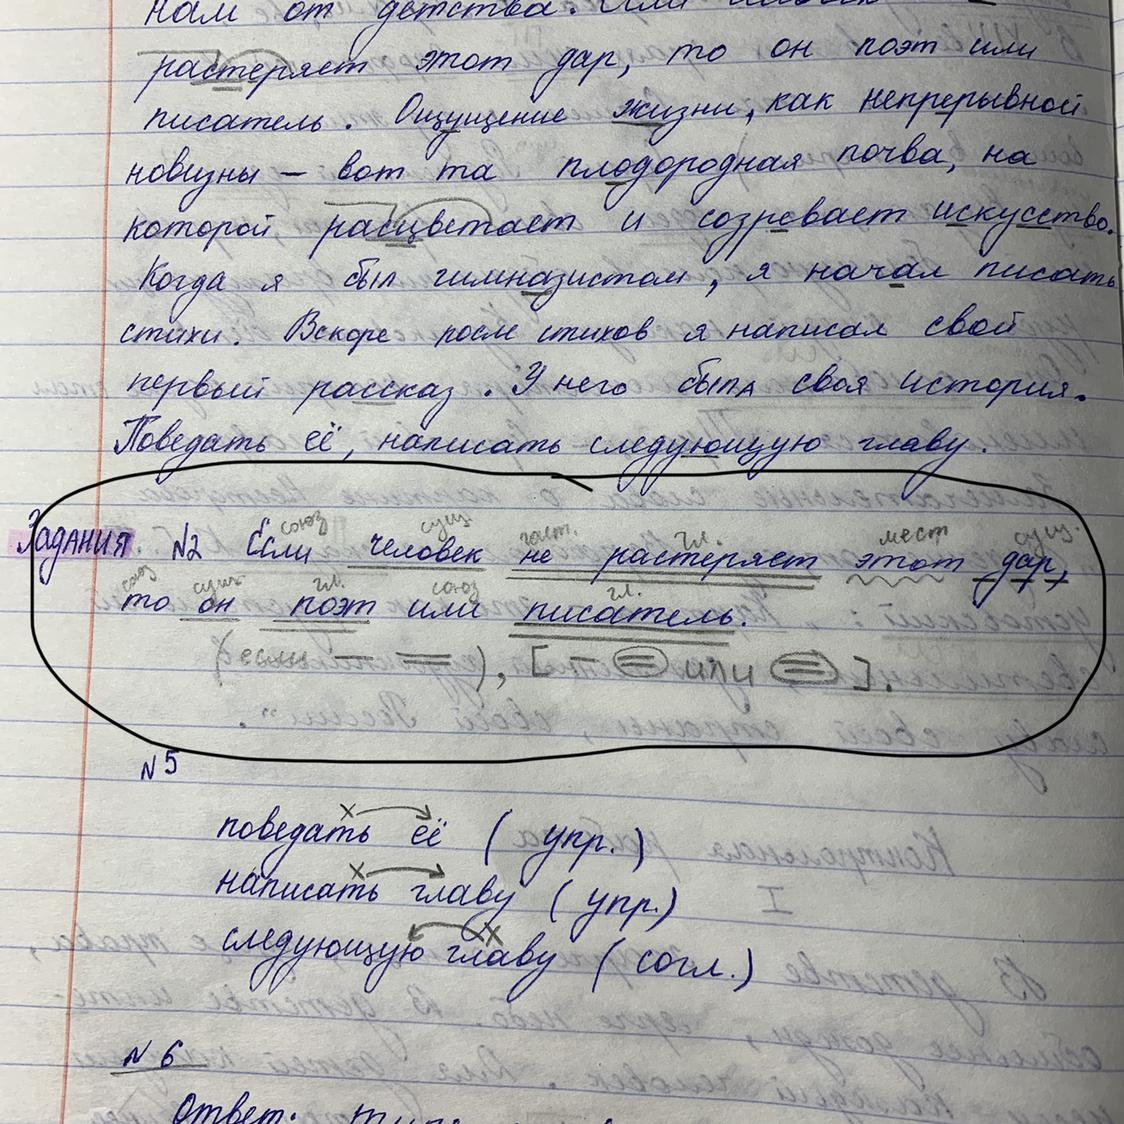 нам от детства. Если человек не
растеряет этот дар, то он поэт или
писатель. Ощущение жизни, как непрерывной
новизны – вот та плодородная почва, на
которой расцветает и созревает искусство.
Когда я был гимназистом, я начал писать
стихи. Вскоре после стихов я написал свой
первый рассказ. У него была своя история.
Поведать её, написать следующую главу.
союз сущ. част. гл. мест сущ.
Задания №2 Если человек не растеряет этот дар,
союз сущ. гл. союз гл.
то он поэт или писатель.
(если — =), [ — = или = ].
№5
поведать её (упр.)
написать главу (упр.)
следующую главу (согл.)
№6
Ответ: